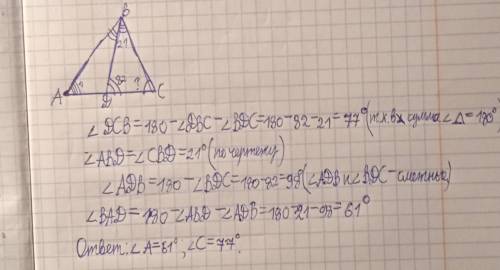 B
21
A
82
?
D
C
∠DCB=180-∠DBC-∠BDC=180-82-21=77°(т.к. сумма ∠Δ=180°
∠ABD=∠CBD=21°(по чертежу)
∠ADB=180-∠BDC=180-82=98(∠ADB и ∠BDC-смежные)
∠BAD=180-∠ABD-∠ADB=180-21-98=61°
Ответ:∠A=61°,∠C=77°.